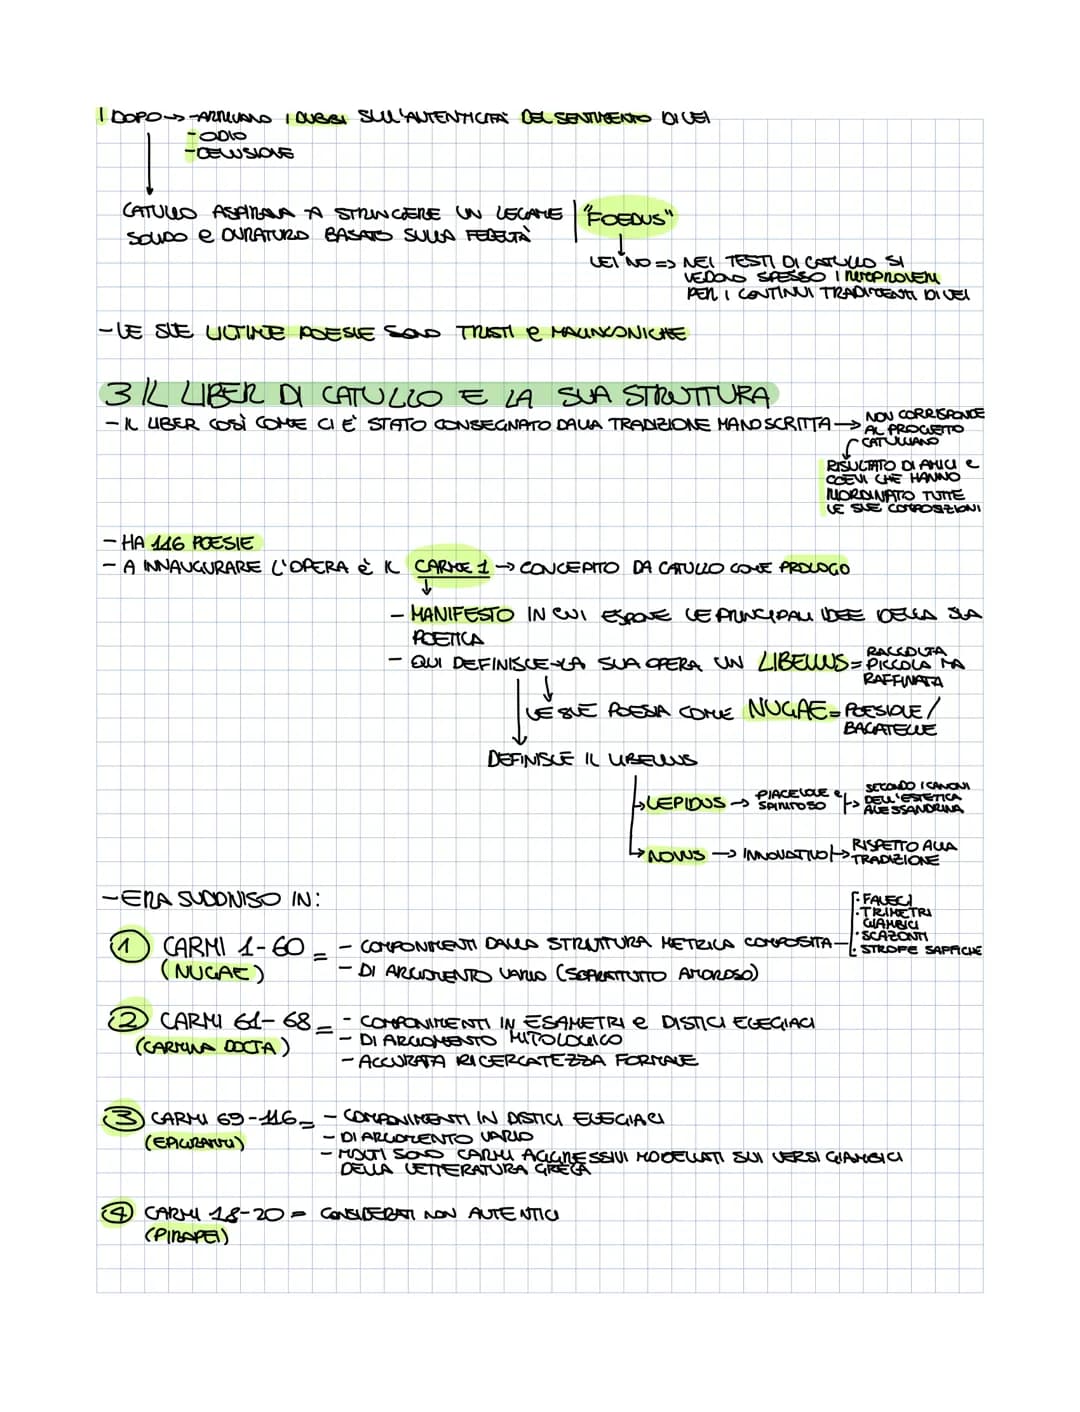 | DOPO → - ARRIVANO I DUBBI SULL'AUTENTICITÀ DEL SENTIMENTO DI LEI
- ODIO
- DELUSIONE
CATULLO ASPIRAVA A STRINGERE UN LEGAME | "FOEDUS"
SOLIDO e DURATURO BASATO SULLA FEDELTÀ
LEI NO => NEI TESTI DI CATULLO SI
VEDONO SPESSO I RIMPROVERI
PER I CONTINUI TRADIMENTI DI LEI
- LE SUE ULTIME POESIE SONO TRISTI e MALINCONICHE
3 IL LIBER DI CATULLO E LA SUA STRUTTURA
- IL LIBER COSÌ COME CI E' STATO CONSEGNATO DALLA TRADIZIONE MANOSCRITTA → NON CORRISPONDE
AL PROGETTO
CATULLIANO
RISULTATO DI AMICI e
COEVI CHE HANNO
RIORDINATO TUTTE
LE SUE COMPOSIZIONI
- HA 116 POESIE
- A INNAUGURARE L'OPERA È IL CARME 1 → CONCEPITO DA CATULLO COME PROLOGO
- MANIFESTO IN CUI ESPONE LE PRINCIPALI IDEE DELLA SUA
POETICA
- QUI DEFINISCE → LA SUA OPERA UN LIBELLUS = RACCOLTA
PICCOLA MA
RAFFINATA
LE SUE POESIA COME NUGAE = POESIOLE /
BAGATELLE
DEFINISCE IL LIBELLUS
LEPIDUS → PIACEVOLE e
SPIRITOSO → SECONDO I CANONI
DELL'ESTETICA
ALESSANDRINA
NOVUS → INNOVATIVO → RISPETTO ALLA
TRADIZIONE
- ERA SUDDIVISO IN:
1 CARMI 1-60 = - COMPONIMENTI DALLA STRUTTURA METRICA COMPOSITA
(NUGAE) - DI ARGOMENTO VARIO (SOPRATTUTTO AMOROSO)
· FALECI
· TRIMETRI
GIAMBICI
· SCAZONTI
· STROFE SAFFICHE
2 CARMI 61-68 = - COMPONIMENTI IN ESAMETRI e DISTICI ELEGIACI
(CARMINA DOCTA) - DI ARGOMENTO MITOLOGICO
- ACCURATA RICERCATEZZA FORMALE
3 CARMI 69-116 = - COMPONIMENTI IN DISTICI ELEGIACI
(EPIGRAMMI) - DI ARGOMENTO VARIO
- MOLTI SONO CARMI AGGRESSIVI MODELLATI SUI VERSI GIAMBICI
DELLA LETTERATURA GRECA
4 CARMI 18-20 = CONSIDERATI NON AUTENTICI
(PIRAPEI)